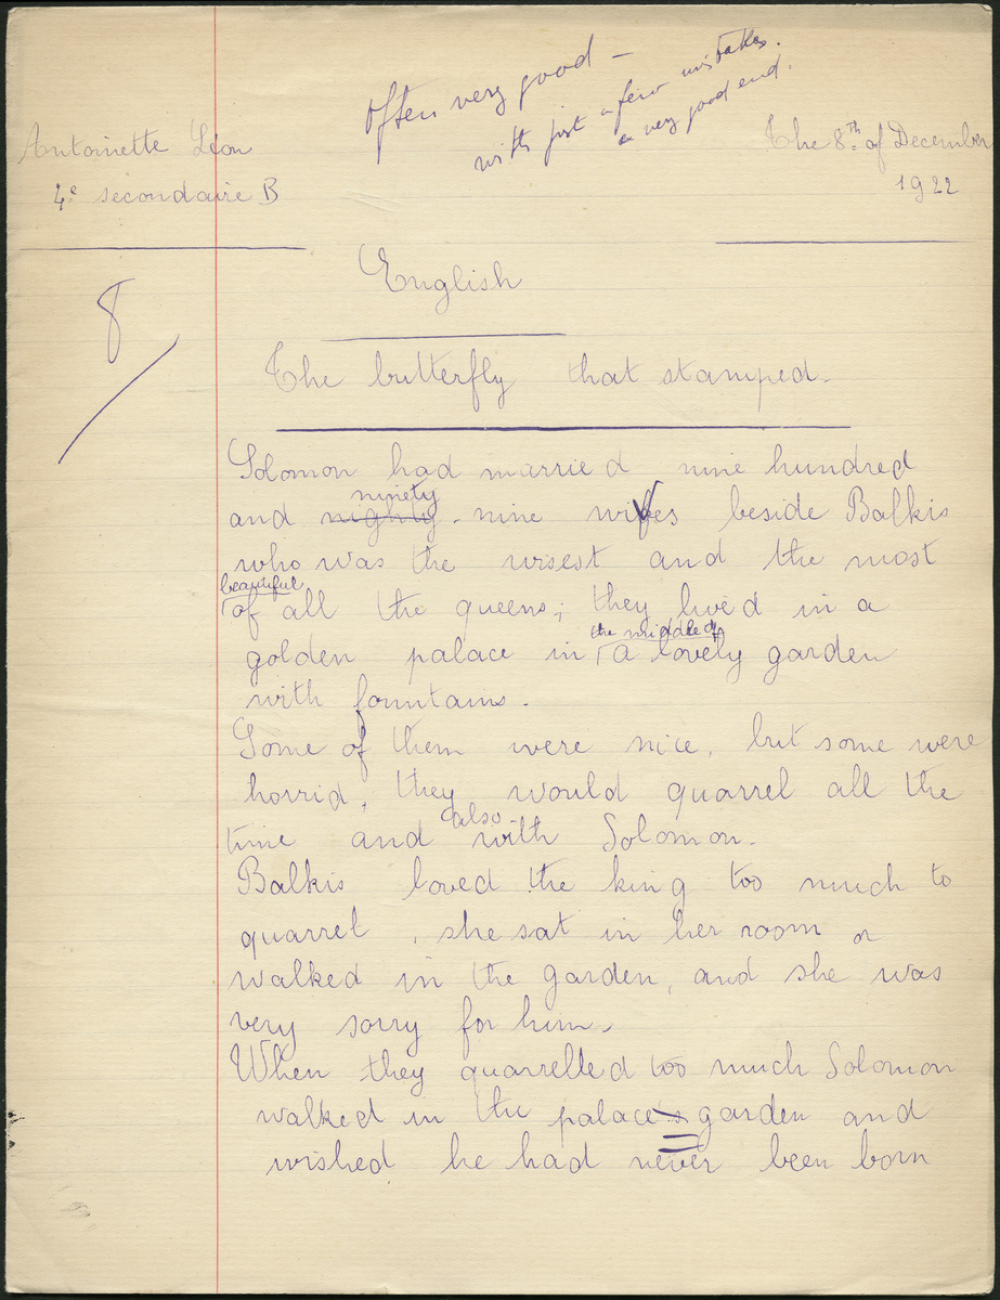 Often very good –
with just a few mistakes.
a very good end.
Antoinette Léon
4e secondaire B
The 8th of December
1922
8
English
The butterfly that stamped.
Solomon had married nine hundred
ninety
and nighty-nine wifves beside Balkis
who was the wisest and the most
beautiful
of all the queens; they lived in a
the middle of
golden palace in a lovely garden
with fountains.
Some of them were nice, but some were
horrid, they would quarrel all the
also
time and with Solomon.
Balkis loved the king too much to
quarrel, she sat in her room or
walked in the garden, and she was
very sorry for him.
When they quarrelled too much Solomon
walked in the palace's garden and
wished he had never been born